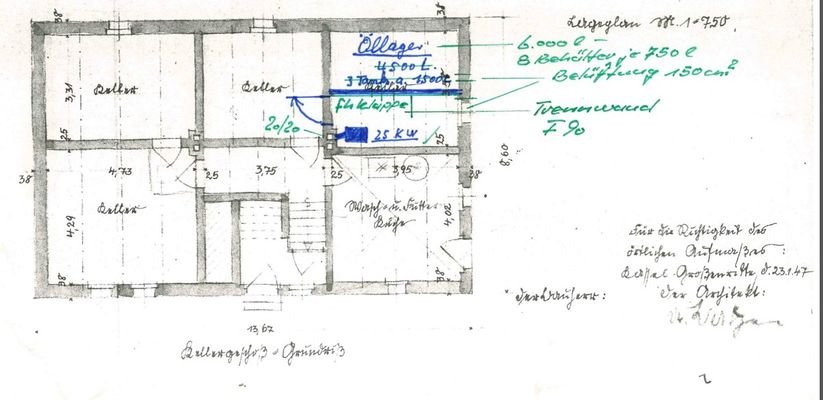 Lageplan M. 1:750.
38
38
Öllager
4500 L.
3 Tank a. 1500 L
6.000 l
8 Behälter je 750 l
Belüftung 150 cm²
Keller
Keller
Keller
3,31
Trennwand
F 90
20/20
25 KW
25
25
8,60
38
4,73
25
3,75
25
3,95
38
Keller
Wasch- u. Futter-
Küche
4,29
4,02
38
38
Für die Richtigkeit des
örtlichen Aufmaßes:
Kassel-Großenritte d. 23.1.47
Der Bauherr:
Der Architekt:
13,67
Kellergeschoß-Grundriß